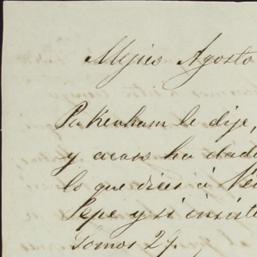 Mejico Agosto
Pakenham le dije,
y acaso ha dado
lo que dices á
Pepe y si insiste
somos 27.